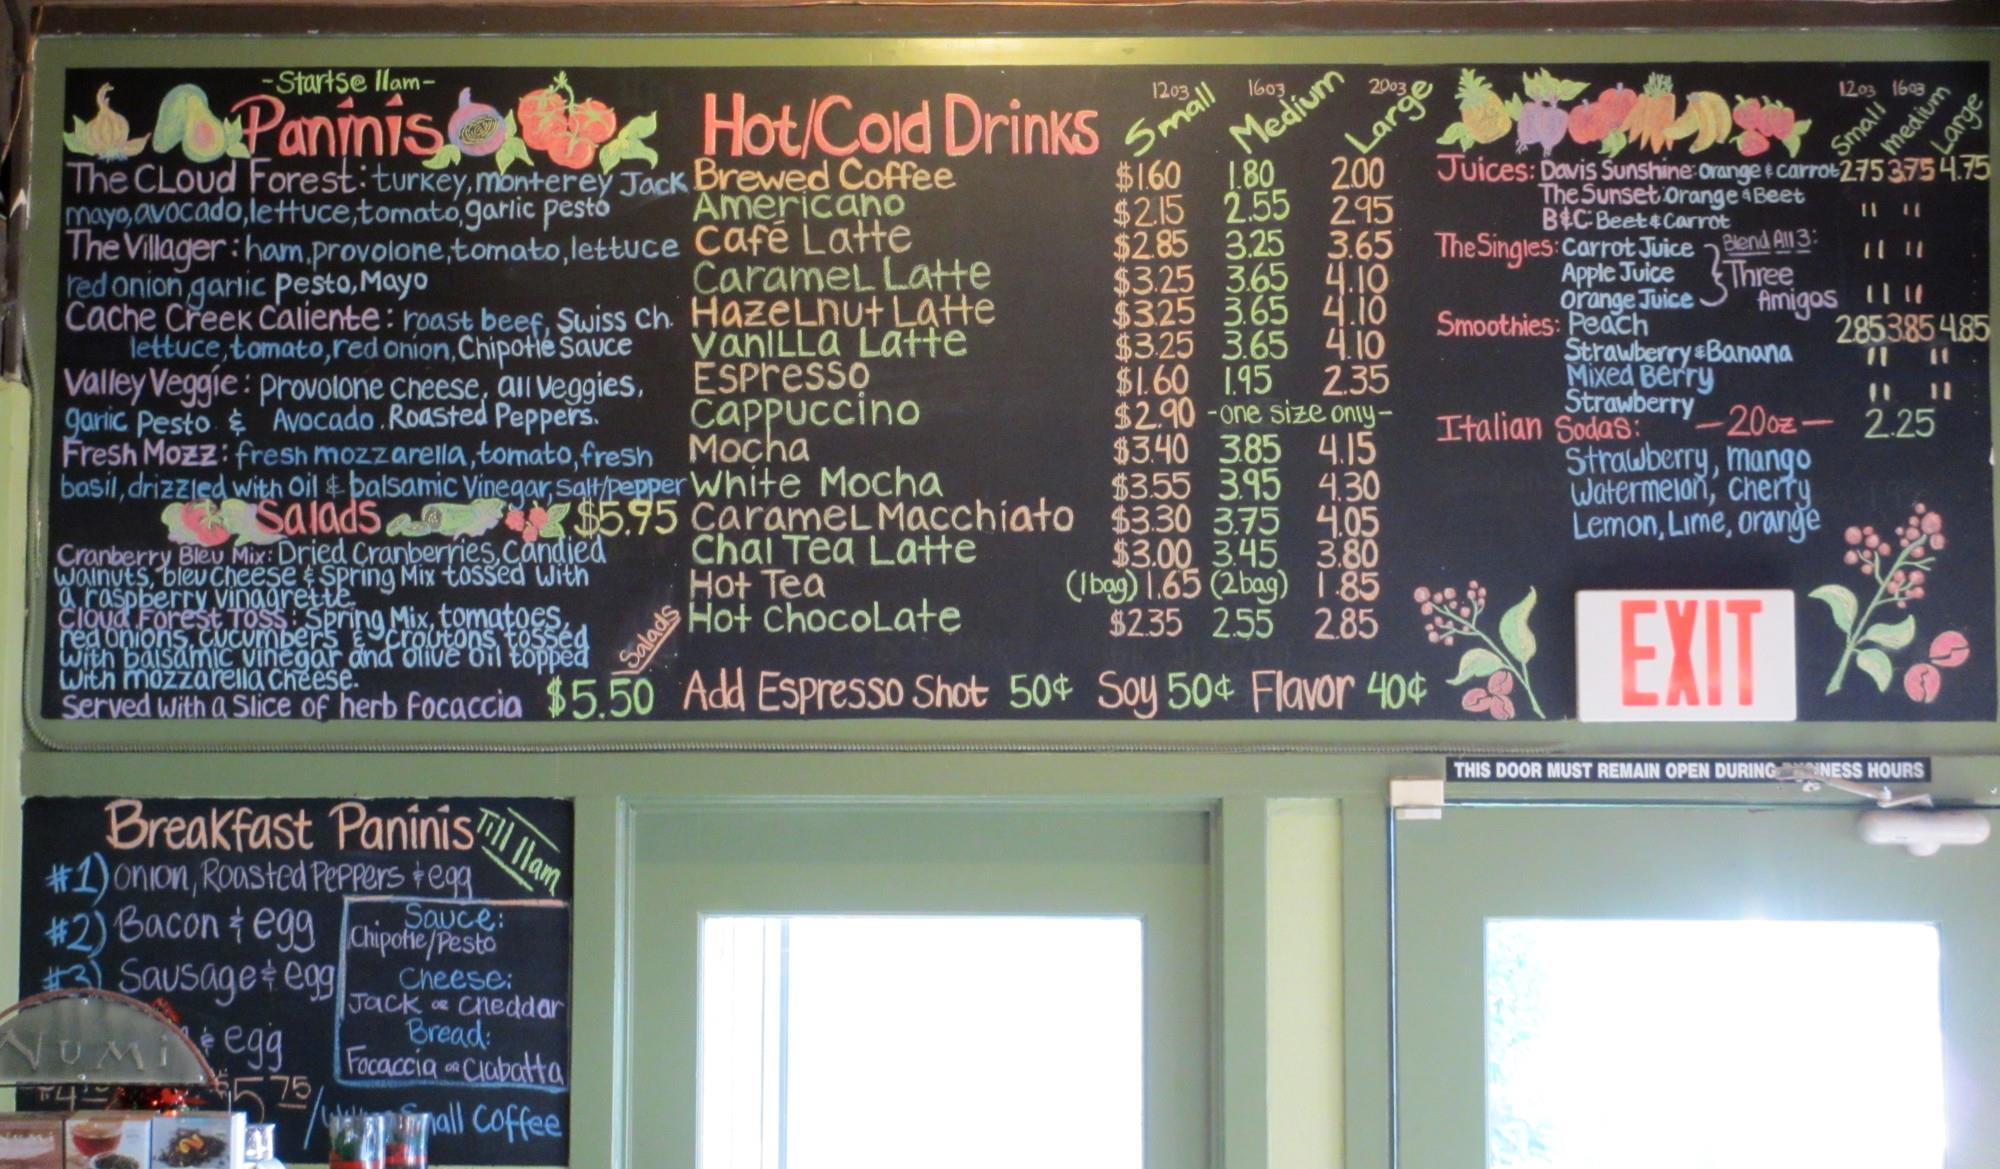 -Starts@ 11am-
Paninis
The Cloud Forest: turkey, monterey Jack
mayo, avocado, lettuce, tomato, garlic pesto
The Villager: ham, provolone, tomato, lettuce
red onion, garlic Pesto, Mayo
Cache Creek Caliente: roast beef, Swiss Ch.
lettuce, tomato, red onion, Chipotle Sauce
Valley Veggie: Provolone Cheese, all Veggies,
garlic Pesto & Avocado. Roasted Peppers.
Fresh Mozz: fresh mozzarella, tomato, fresh
basil, drizzled with Oil & balsamic Vinegar, Salt/pepper
Salads $5.95
Cranberry Bleu Mix: Dried Cranberries, Candied
walnuts, bleu cheese & Spring Mix tossed with
a raspberry vinaigrette.
Cloud Forest Toss: Spring Mix, tomatoes,
red onions, cucumbers & croutons tossed
with balsamic vinegar and olive oil topped
with mozzarella cheese.
Salads
Served with a Slice of herb Focaccia $5.50
Hot/Cold Drinks 12oz Small 16oz Medium 20oz Large
Brewed Coffee $1.60 1.80 2.00
Americano $2.15 2.55 2.95
Café Latte $2.85 3.25 3.65
Caramel Latte $3.25 3.65 4.10
Hazelnut Latte $3.25 3.65 4.10
Vanilla Latte $3.25 3.65 4.10
Espresso $1.60 1.95 2.35
Cappuccino $2.90 -one size only-
Mocha $3.40 3.85 4.15
White Mocha $3.55 3.95 4.30
Caramel Macchiato $3.30 3.75 4.05
Chai Tea Latte $3.00 3.45 3.80
Hot Tea (1bag) 1.65 (2bag) 1.85
Hot Chocolate $2.35 2.55 2.85
Add Espresso Shot 50¢ Soy 50¢ Flavor 40¢
12oz Small 16oz medium Large
Juices: Davis Sunshine: Orange & Carrot 2.75 3.75 4.75
The Sunset: Orange & Beet " "
B&C: Beet & Carrot
The Singles: Carrot Juice Blend All 3: " "
Apple Juice Three
Orange Juice Amigos " "
Smoothies: Peach 2.85 3.85 4.85
Strawberry & Banana " "
Mixed Berry
Strawberry " "
Italian Sodas: -20oz- 2.25
Strawberry, mango
Watermelon, Cherry
Lemon, Lime, Orange
EXIT
THIS DOOR MUST REMAIN OPEN DURING BUSINESS HOURS
Breakfast Paninis Till 11am
#1) Onion, Roasted Peppers & egg
#2) Bacon & egg
#3) Sausage & egg
& egg
$5.75
Small Coffee
Sauce:
Chipotle/Pesto
Cheese:
Jack or Cheddar
Bread:
Focaccia or Ciabatta
NUMI